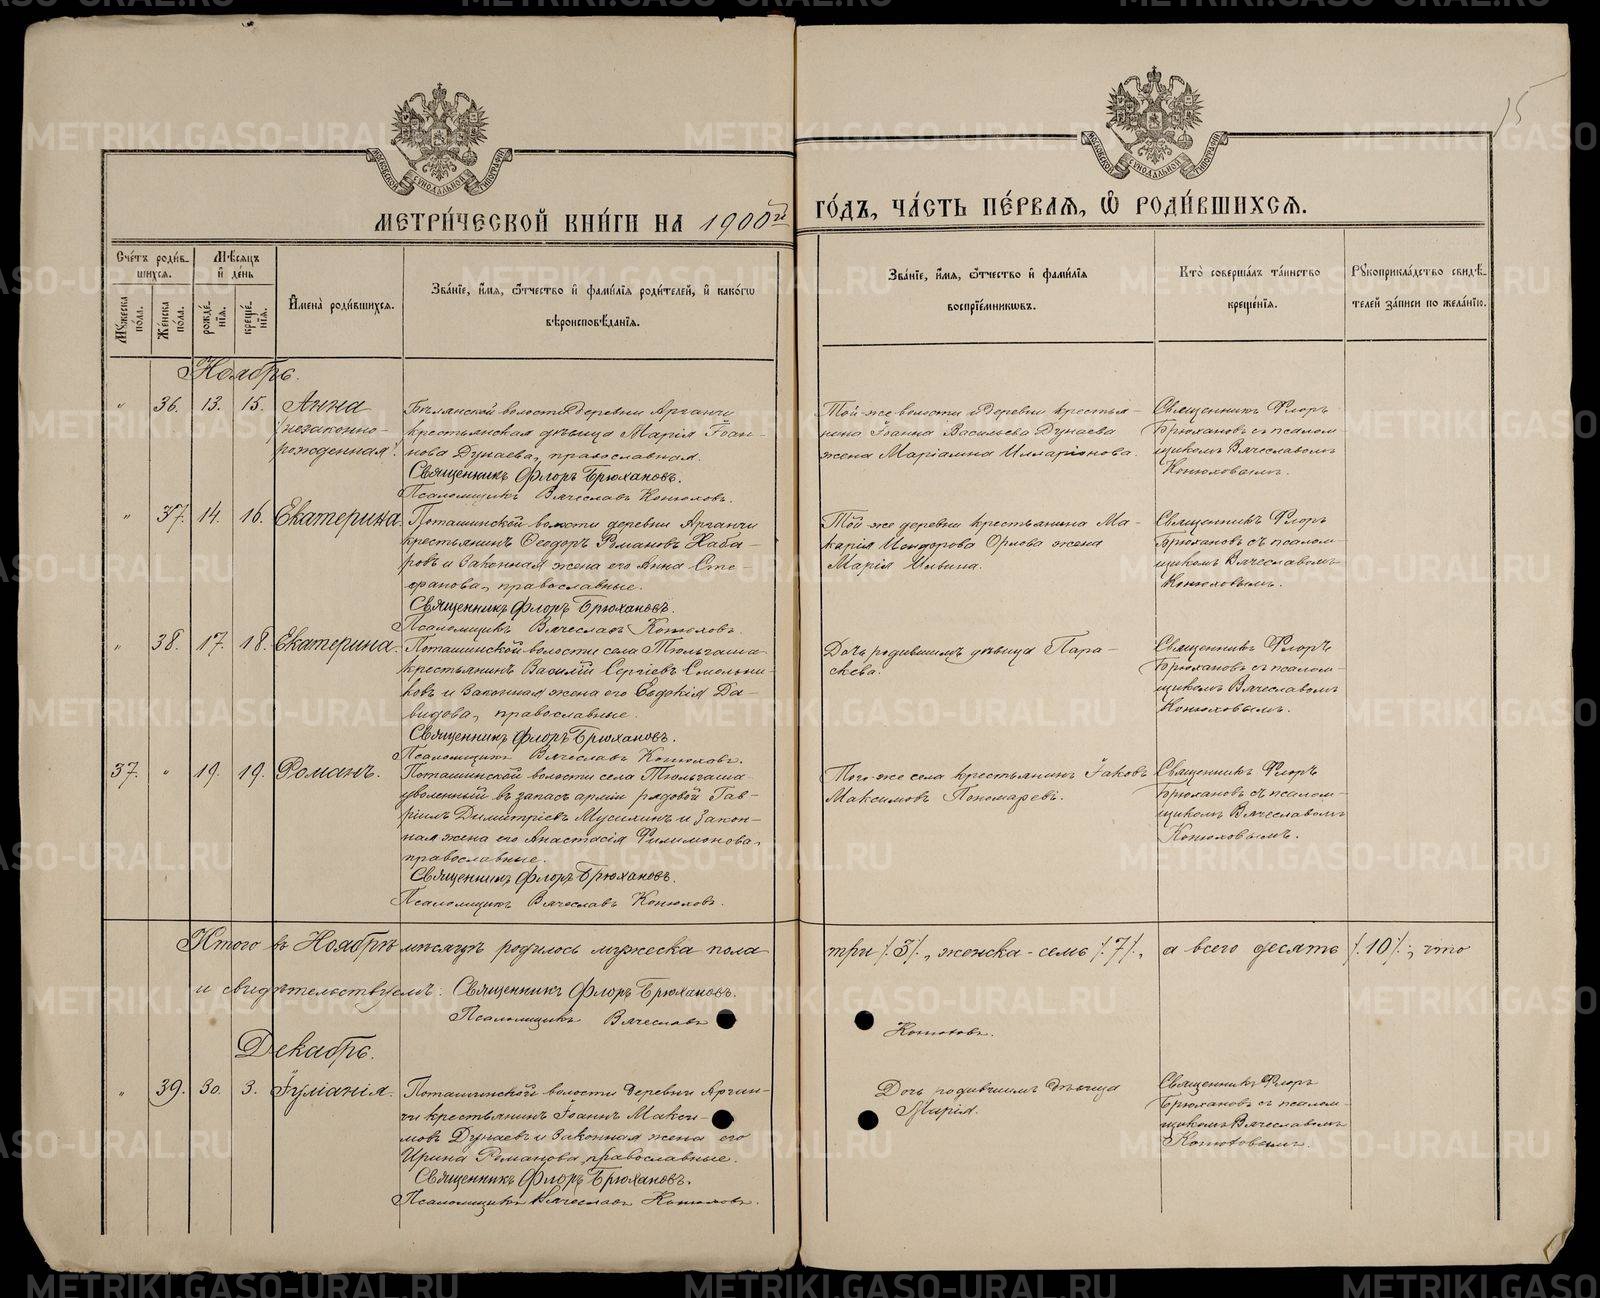 15
МОСКОВСКОЙ СѴНОДАЛЬНОЙ ТИПОГРАФІИ
МОСКОВСКОЙ СѴНОДАЛЬНОЙ ТИПОГРАФІИ
МЕТРИ́ЧЕСКОЙ КНИ́ГИ НА 1900й ГО́ДЪ, ЧА́СТЬ ПЕ́РВАЯ, Ѡ РОДИ́ВШИХСЯ.
Сче́тъ роди́вшихся.
Му́жеска по́ла.
Же́нска по́ла.
Мѣ́сяцъ и́ де́нь
рожде́нія.
креще́нія.
И́мена̀ роди́вшихся.
Зва́ніе, и́мя, ѻ҆́тчество и́ фами́лія роди́телей, и́ како́гѡ
вѣроисповѣ́данія.
Зва́ніе, и́мя, ѻ҆́тчество и́ фами́лія
воспріе́мниковъ.
Кто̀ соверша́лъ та́инство
креще́нія.
Рꙋкоприкла́дство свидѣ́-
телей за́писи по жела́нію.
Ноябрь.
" 36. 13. 15. Анна
/незаконно-
рожденная/.
Бѣлянской волости деревни Арганчи
крестьянская дѣвица Марія Іоан-
нова Дунаева, православная.
Священникъ Флоръ Брюхановъ.
Псаломщикъ Вячеславъ Конюховъ.
Той-же волости и деревни крестья-
нина Іоанна Васильева Дунаева
жена Маріамна Илларіонова.
Священникъ Флоръ
Брюхановъ съ псалом-
щикомъ Вячеславомъ
Конюховымъ.
" 37. 14. 16. Екатерина.
Поташинской волости деревни Арганчи
крестьянинъ Ѳеодоръ Романовъ Наба-
ровъ и законная жена его Анна Сте-
фанова, православные.
Священникъ Флоръ Брюхановъ.
Псаломщикъ Вячеславъ Конюховъ.
Той-же деревни крестьянина Ма-
карія Исидорова Орлова жена
Марія Ильина.
Священникъ Флоръ
Брюхановъ съ псалом-
щикомъ Вячеславомъ
Конюховымъ.
" 38. 17. 18. Екатерина.
Поташинской волости села Тюльгаша
крестьянинъ Василій Сергіевъ Смольни-
ковъ и законная жена его Евдокія Да-
видова, православные.
Священникъ Флоръ Брюхановъ.
Псаломщикъ Вячеславъ Конюховъ.
Дочь родившимъ дѣвица Пара-
скева.
Священникъ Флоръ
Брюхановъ съ псалом-
щикомъ Вячеславомъ
Конюховымъ.
37. " 19. 19. Романъ.
Поташинской волости села Тюльгаша
уволенный въ запасъ арміи рядовой Гав-
ріилъ Димитріевъ Мусихинъ и закон-
ная жена его Анастасія Филимонова,
православные.
Священникъ Флоръ Брюхановъ.
Псаломщикъ Вячеславъ Конюховъ.
Того-же села крестьянинъ Іаковъ
Максимовъ Пономаревъ.
Священникъ Флоръ
Брюхановъ съ псалом-
щикомъ Вячеславомъ
Конюховымъ.
Итого въ Ноябрѣ мѣсяцѣ родилось мужеска пола три /.3/., женска - семь /.7/., а всего десять /.10/.; что
и свидѣтельствуемъ: Священникъ Флоръ Брюхановъ.
Псаломщикъ Вячеславъ Конюховъ.
Декабрь.
" 39. 30. 3. Іуліанія.
Поташинской волости деревни Арган-
чи крестьянинъ Іоаннъ Макси-
мовъ Дунаевъ и законная жена его
Ирина Романова, православные.
Священникъ Флоръ Брюхановъ.
Псаломщикъ Вячеславъ Конюховъ.
Дочь родившимъ дѣвица
Марія.
Священникъ Флоръ
Брюхановъ съ псалом-
щикомъ Вячеславомъ
Конюховымъ.
METRIKI.GASO-URAL.RU